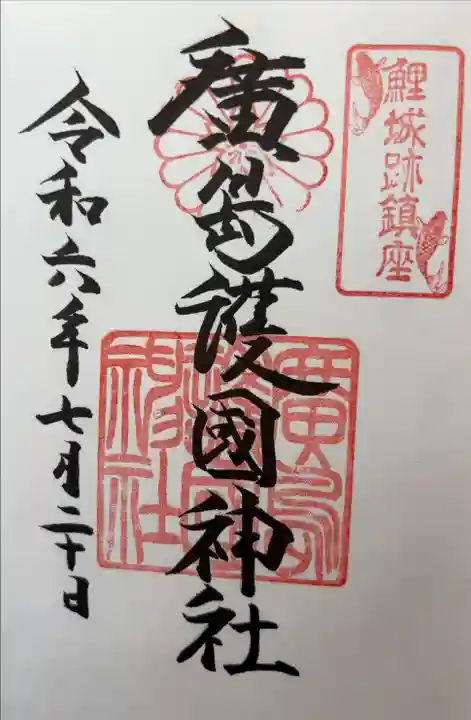 鯉城跡鎮座
廣島護國神社
廣島護國神社
令和六年七月二十日